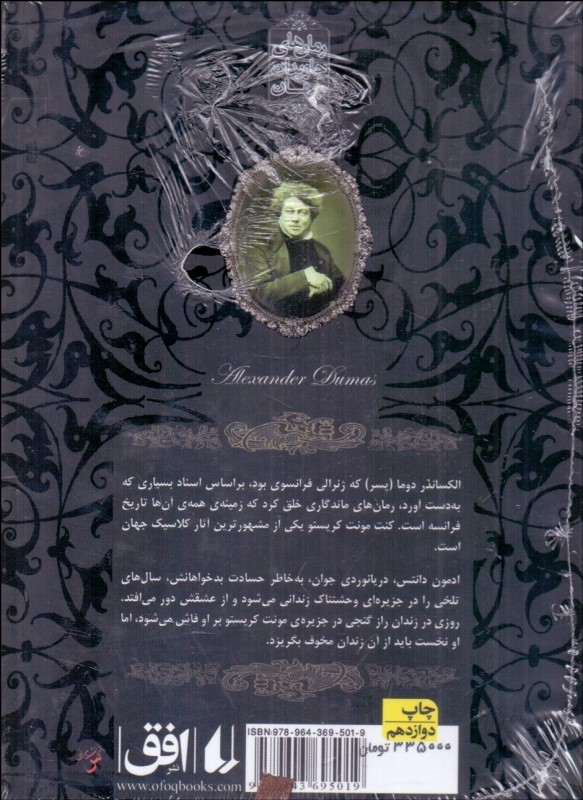 رمان‌های
جاویدان
جهان
Alexander Dumas
الکساندر دوما (پسر) که ژنرالی فرانسوی بود، براساس اسناد بسیاری که
به‌دست آورد، رمان‌های ماندگاری خلق کرد که زمینه‌ی همه‌ی آن‌ها تاریخ
فرانسه است. کنت مونت کریستو یکی از مشهورترین آثار کلاسیک جهان
است.
ادمون دانتس، دریانوردی جوان، به‌خاطر حسادت بدخواهانش، سال‌های
تلخی را در جزیره‌ای وحشتناک زندانی می‌شود و از عشقش دور می‌افتد.
روزی در زندان راز گنجی در جزیره‌ی مونت کریستو بر او فاش می‌شود، اما
او نخست باید از آن زندان مخوف بگریزد.
چاپ
دوازدهم
۳۳۵۰۰۰ تومان
ISBN 978-964-369-501-9
43 695019
نشر افق
www.ofoqbooks.com